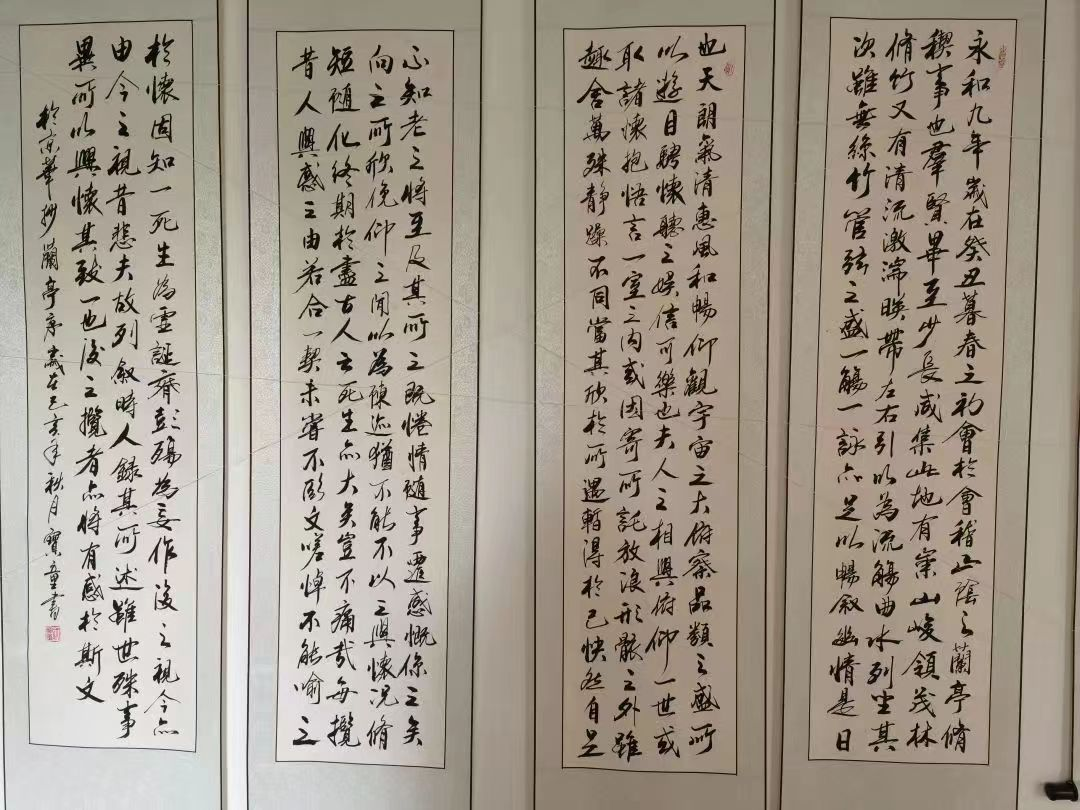 永和九年歲在癸丑暮春之初會於會稽山陰之蘭亭脩
稧事也羣賢畢至少長咸集此地有崇山峻領茂林
脩竹又有清流激湍暎帶左右引以為流觴曲水列坐其
次雖無絲竹管弦之盛一觴一詠亦足以暢敘幽情是日
也天朗氣清惠風和暢仰觀宇宙之大俯察品類之盛所
以遊目騁懷聽之娛信可樂也夫人之相與俯仰一世或
取諸懷抱悟言一室之内或因寄所託放浪形骸之外雖
趣舍萬殊靜躁不同當其欣於所遇暫得於己快然自足
不知老之將至及其所之既惓情隨事遷感慨係之矣
向之所欣俛仰之間以為陳迹猶不能不以之興懷況脩
短隨化終期於盡古人云死生亦大矣豈不痛哉每攬
昔人興感之由若合一契未嘗不臨文嗟悼不能喻之
於懷固知一死生為虛誕齊彭殤為妄作後之視今亦
由今之視昔悲夫故列敘時人錄其所述雖世殊事
異所以興懷其致一也後之攬者亦將有感於斯文
於京華抄蘭亭序歲在己亥年秋月寶童書